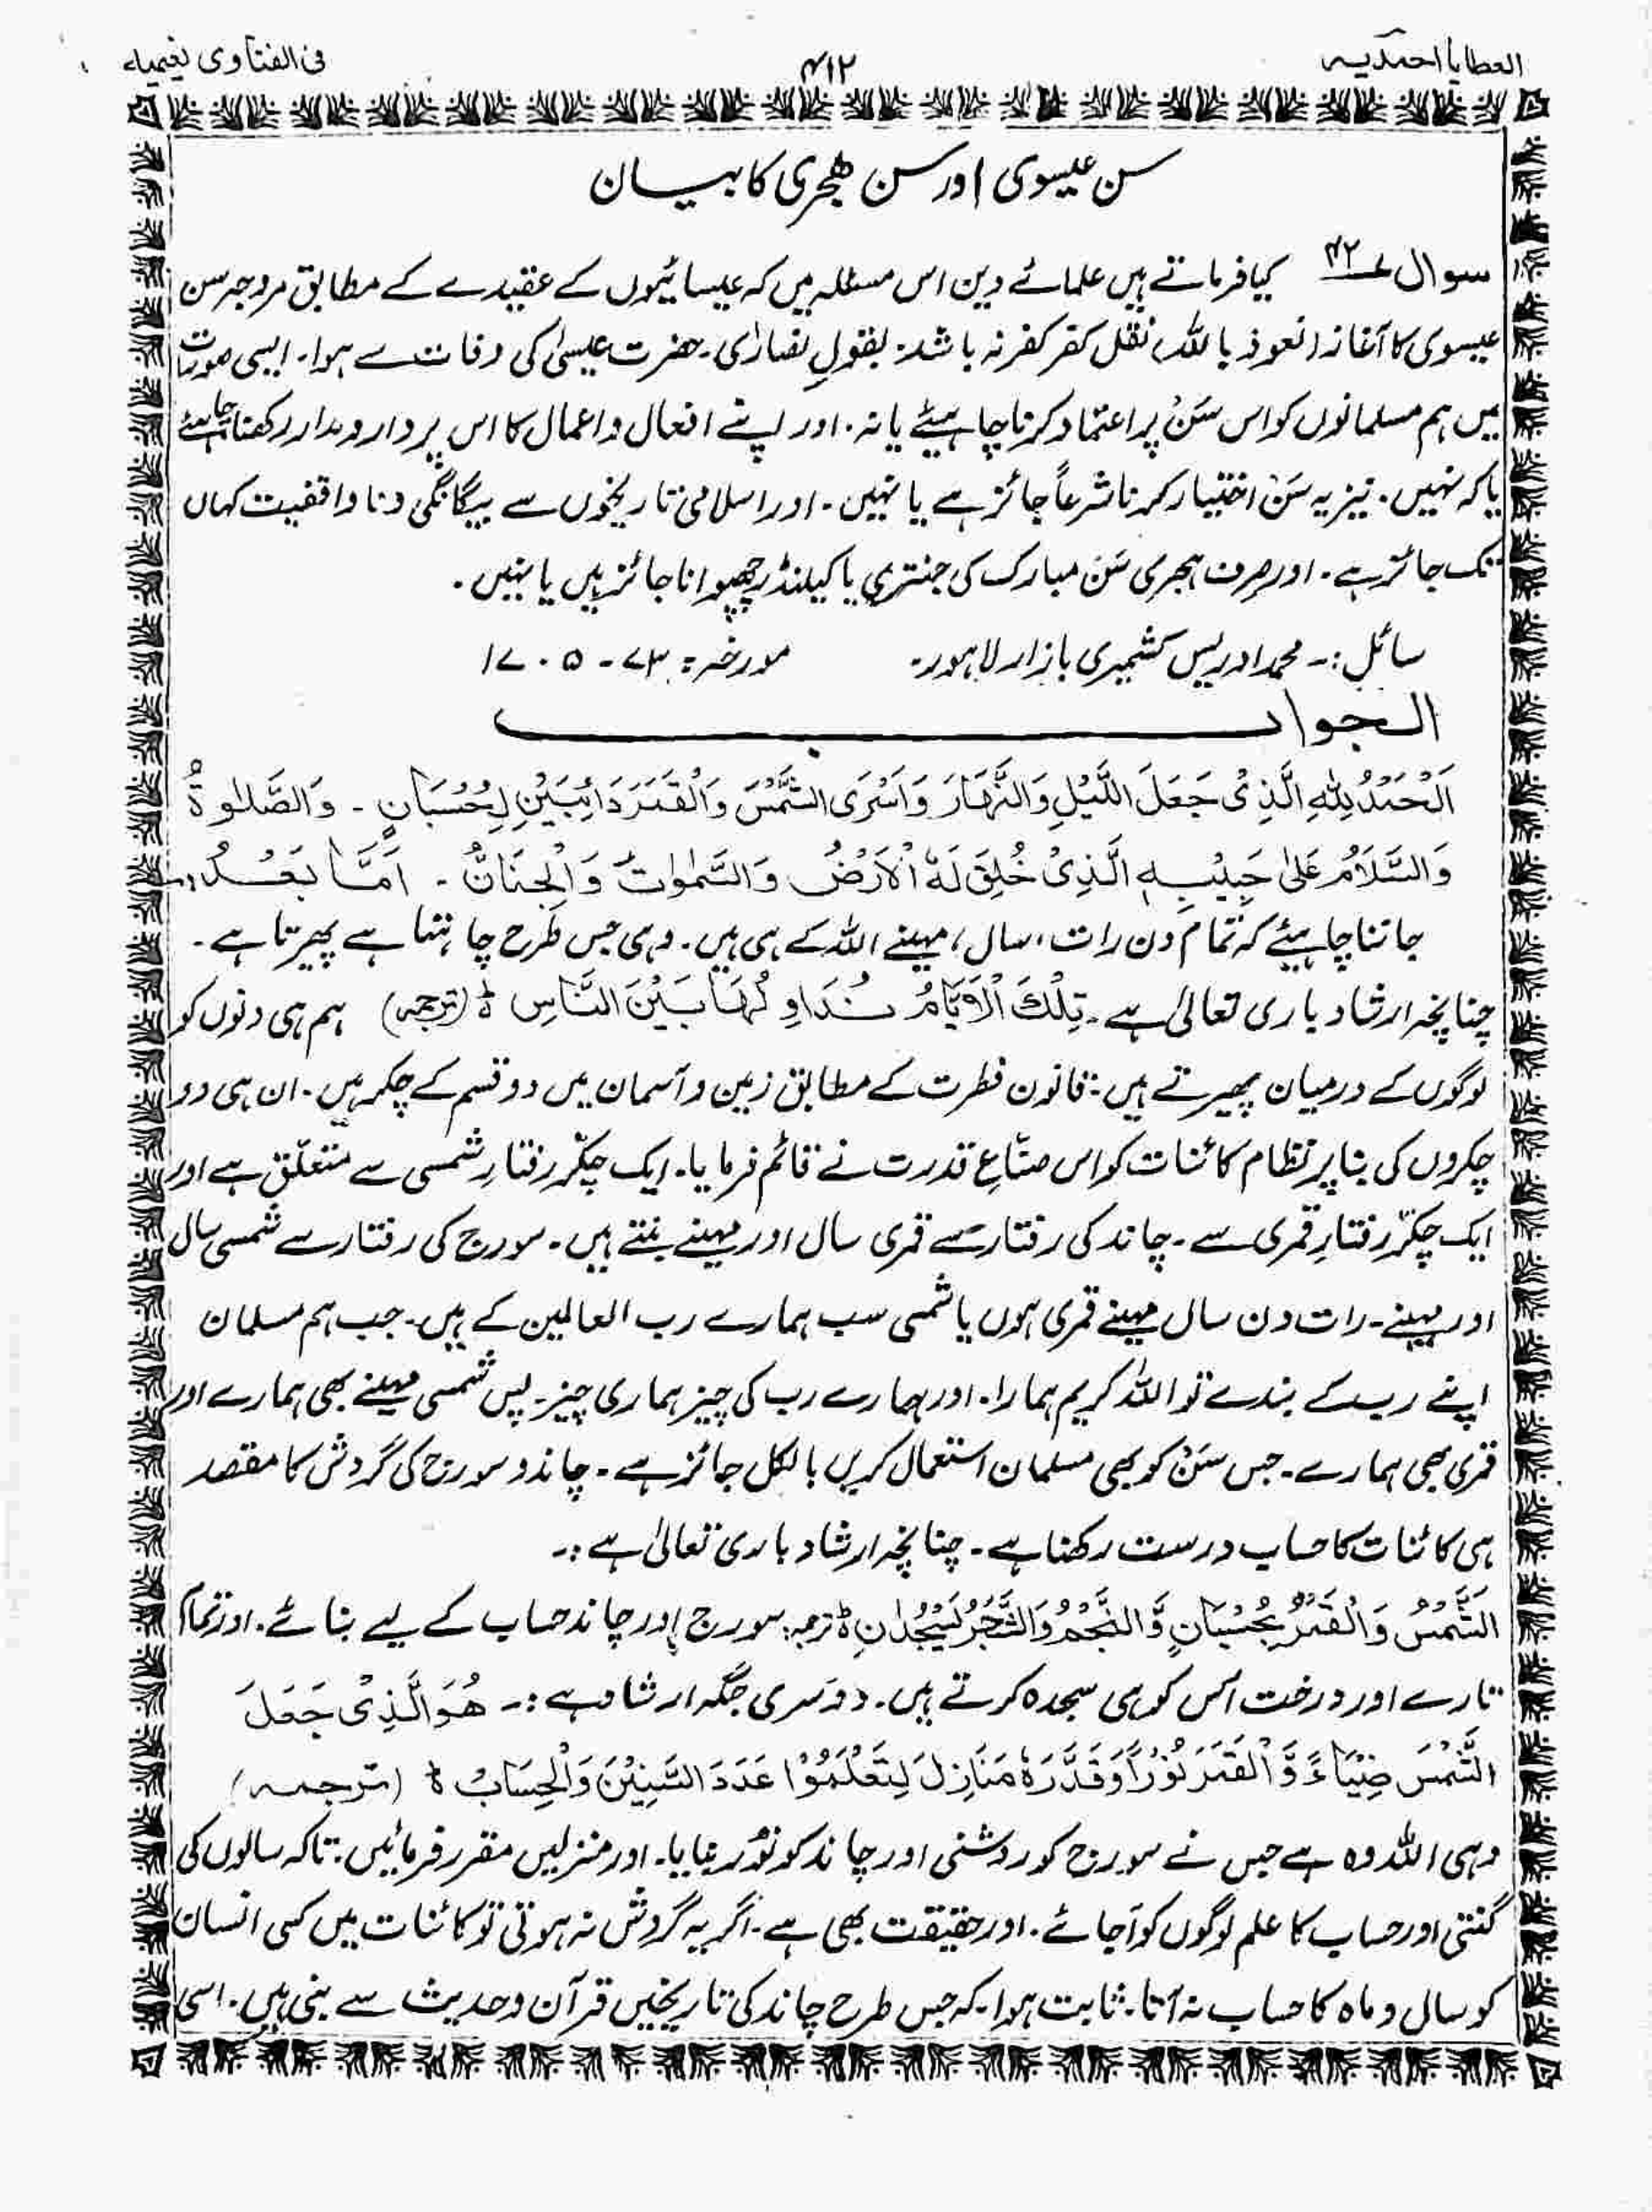 العطایا احمدیہ
۴۱۲
فی الفتاوی نعیمیہ
سن عیسوی اور سن ھجری کا بیان
سوال ۴۲ کیا فرماتے ہیں علمائے دین اس مسئلہ میں کہ عیسائیوں کے عقیدے کے مطابق مروجہ سن
عیسوی کا آغاز (نعوذ باللہ نقل کفر کفر نہ باشد۔ بقولِ نصارٰی۔ حضرت عیسیٰ کی وفات سے ہوا۔ ایسی صورت
میں ہم مسلمانوں کو اس سَنْ پر اعتماد کرنا چاہیئے یا نہ۔ اور اپنے افعال و اعمال کا اس پر دارومدار رکھنا چاہیئے
یا کہ نہیں۔ نیز یہ سَنْ اختیار کرنا شرعاً جائز ہے یا نہیں۔ اور اسلامی تاریخوں سے بیگانگی و ناواقفیت کہاں
تک جائز ہے۔ اور صرف ہجری سَن مبارک کی جنتری یا کیلنڈر چھپوانا جائز ہیں یا نہیں۔
سائل:۔ محمد ادریس کشمیری بازار لاہور۔ مورخہ: ۷۳ - ۵ - ۱۷
الجواب
اَلْحَمْدُ لِلّٰہِ الَّذِیْ جَعَلَ اللَّیْلِ وَالنَّھَارَ وَاَسْرَی الشَّمْسَ وَالْقَمَرَ دَائِبَیْنِ لِحُسْبَانٍ ۔ وَالصَّلٰوۃُ
وَالسَّلَامُ عَلٰی حَبِیْبِہٖ الَّذِیْ خُلِقَ لَہٗ الْاَرْضُ وَالسَّمٰوٰتُ وَالْجِنَانُ ۔ اَمَّا بَعْدُ
جاننا چاہیئے کہ تمام دن رات، سال، مہینے اللہ کے ہی ہیں۔ وہی جس طرح چاہتا ہے پھیرتا ہے۔
چنانچہ ارشاد باری تعالیٰ ہے۔ تِلْکَ الْاَیَّامُ نُدَاوِلُھَا بَیْنَ النَّاسِ ط (ترجمہ) ہم ہی دنوں کو
لوگوں کے درمیان پھیرتے ہیں: قانون فطرت کے مطابق زمین و آسمان میں دو قسم کے چکر ہیں۔ ان ہی دو
چکروں کی بنا پر نظام کائنات کو اس صنّاعِ قدرت نے قائم فرمایا۔ ایک چکّر رفتارِ شمسی سے متعلّق ہے اور
ایک چکّر رفتارِ قمری سے۔ چاند کی رفتار سے قمری سال اور مہینے بنتے ہیں۔ سورج کی رفتار سے شمسی سال
اور مہینے۔ رات دن سال مہینے قمری ہوں یا شمسی سب ہمارے رب العالمین کے ہیں۔ جب ہم مسلمان
اپنے رب کے بندے تو اللہ کریم ہمارا۔ اور ہمارے رب کی چیز ہماری چیز۔ پس شمسی مہینے بھی ہمارے اور
قمری بھی ہمارے۔ جس سَنْ کو بھی مسلمان استعمال کریں بالکل جائز ہے۔ چاند و سورج کی گردش کا مقصد
ہی کائنات کا حساب درست رکھنا ہے۔ چنانچہ ارشاد باری تعالیٰ ہے:۔
الشَّمْسُ وَالْقَمَرُ بِحُسْبَانٍ وَّالنَّجْمُ وَالشَّجَرُ یَسْجُدٰنِ ط ترجمہ: سورج اور چاند حساب کے لیے بنائے۔ اور تمام
تارے اور درخت اس کو ہی سجدہ کرتے ہیں۔ دوسری جگہ ارشاد ہے:۔ ھُوَ الَّذِیْ جَعَلَ
الشَّمْسَ ضِیَاءً وَّ الْقَمَرَ نُوْرًا وَقَدَّرَہٗ مَنَازِلَ لِتَعْلَمُوْا عَدَدَ السِّنِیْنَ وَالْحِسَابْ ط (ترجمہ)
وہی اللہ وہ ہے جس نے سورج کو روشنی اور چاند کو نُوْر بنایا۔ اور منزلیں مقرر فرمائیں: تاکہ سالوں کی
گنتی اور حساب کا علم لوگوں کو آجائے۔ اور حقیقت بھی ہے۔ اگر یہ گردش نہ ہوتی تو کائنات میں کسی انسان
کو سال و ماہ کا حساب نہ آتا۔ ثابت ہوا۔ کہ جس طرح چاند کی تاریخیں قرآن و حدیث سے بنی ہیں۔ اسی